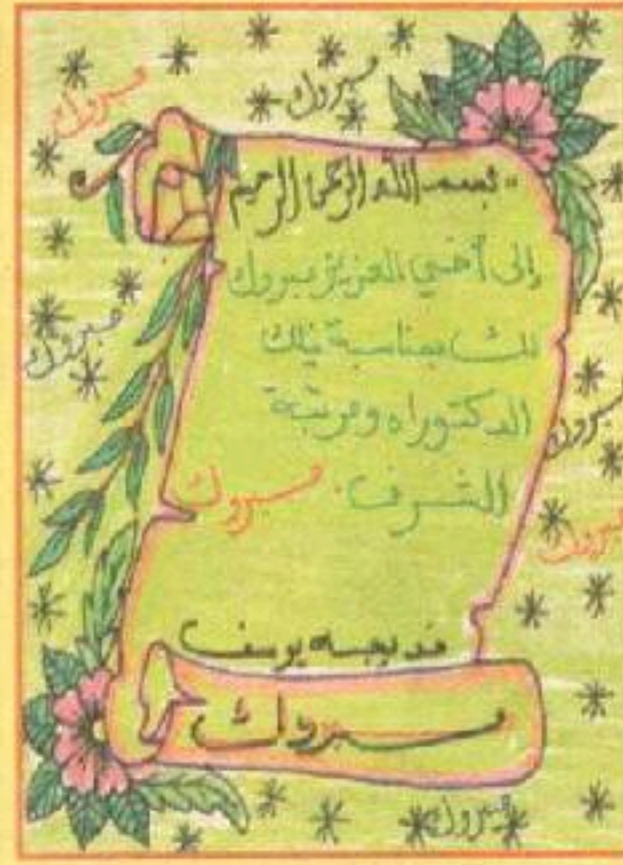 مبروك
مبروك
"بسم الله الرحمن الرحيم
إلى أخي العزيز مبروك
لك بمناسبة نيلك
الدكتوراه ومرتبة
الشرف.
مبروك
مبروك
مبروك
مبروك
خديجة يوسف
مبروك
مبروك